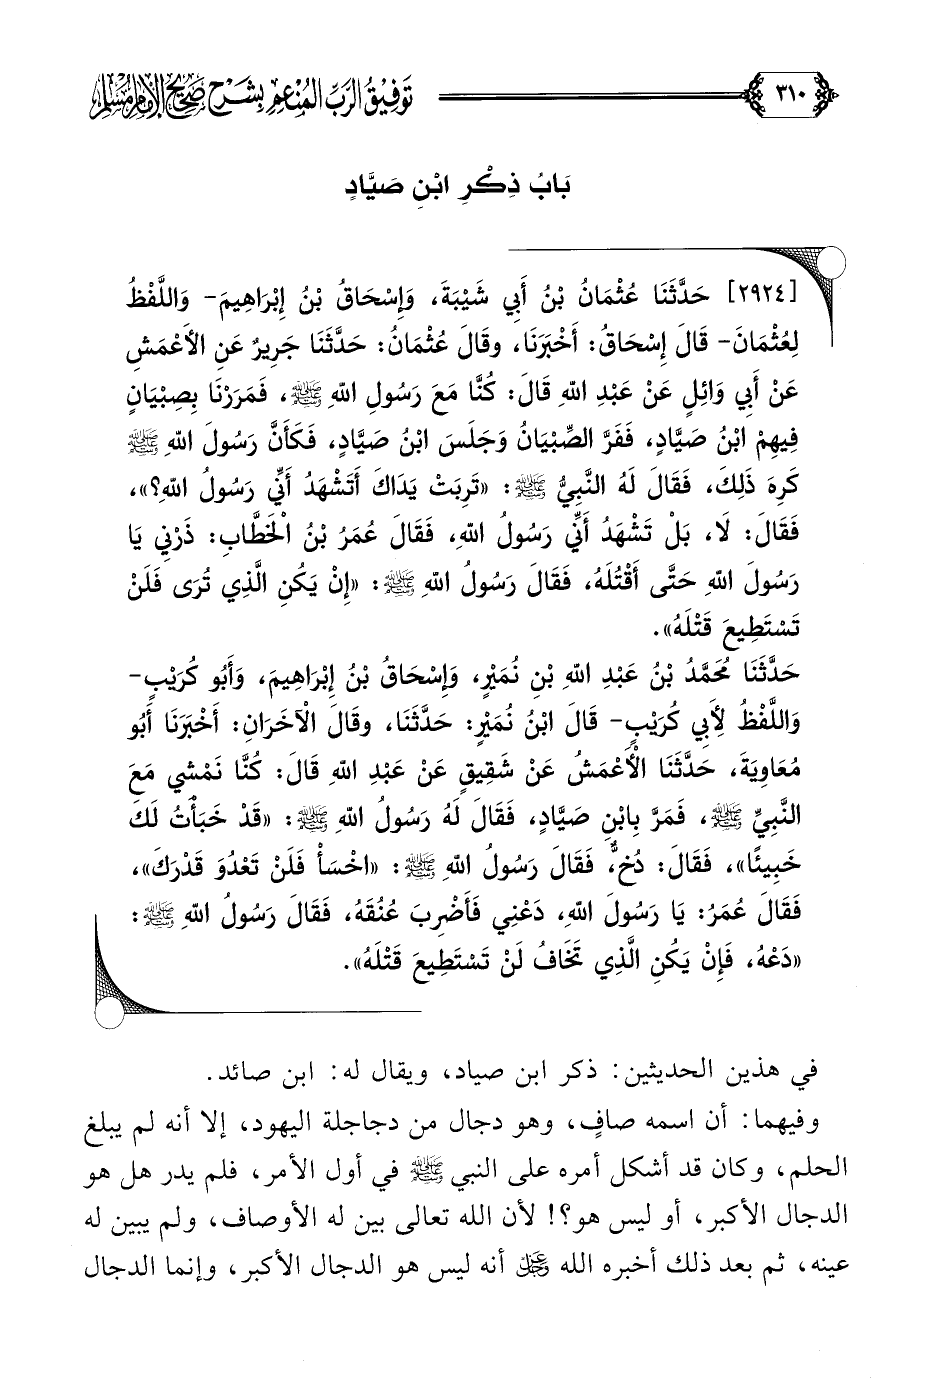 ٣١٠ توفيق الرب المنعم بشرح صحيح الإمام مسلم
بَابُ ذِكْرِ ابْنِ صَيَّادٍ
[٢٩٢٤] حَدَّثَنَا عُثْمَانُ بْنُ أَبِي شَيْبَةَ، وَإِسْحَاقُ بْنُ إِبْرَاهِيمَ- وَاللَّفْظُ
لِعُثْمَانَ- قَالَ إِسْحَاقُ: أَخْبَرَنَا، وقَالَ عُثْمَانُ: حَدَّثَنَا جَرِيرٌ عَنِ الأَعْمَشِ
عَنْ أَبِي وَائِلٍ عَنْ عَبْدِ اللهِ قَالَ: كُنَّا مَعَ رَسُولِ اللهِ ﷺ، فَمَرَرْنَا بِصِبْيَانٍ
فِيهِمْ ابْنُ صَيَّادٍ، فَفَرَّ الصِّبْيَانُ وَجَلَسَ ابْنُ صَيَّادٍ، فَكَأَنَّ رَسُولَ اللهِ ﷺ
كَرِهَ ذَلِكَ، فَقَالَ لَهُ النَّبِيُّ ﷺ: «تَرِبَتْ يَدَاكَ أَتَشْهَدُ أَنِّي رَسُولُ اللهِ؟»،
فَقَالَ: لَا، بَلْ تَشْهَدُ أَنِّي رَسُولُ اللهِ، فَقَالَ عُمَرُ بْنُ الْخَطَّابِ: ذَرْنِي يَا
رَسُولَ اللهِ حَتَّى أَقْتُلَهُ، فَقَالَ رَسُولُ اللهِ ﷺ: «إِنْ يَكُنِ الَّذِي تُرَى فَلَنْ
تَسْتَطِيعَ قَتْلَهُ».
حَدَّثَنَا مُحَمَّدُ بْنُ عَبْدِ اللهِ بْنِ نُمَيْرٍ، وَإِسْحَاقُ بْنُ إِبْرَاهِيمَ، وَأَبُو كُرَيْبٍ-
وَاللَّفْظُ لِأَبِي كُرَيْبٍ- قَالَ ابْنُ نُمَيْرٍ: حَدَّثَنَا، وقَالَ الْآخَرَانِ: أَخْبَرَنَا أَبُو
مُعَاوِيَةَ، حَدَّثَنَا الْأَعْمَشُ عَنْ شَقِيقٍ عَنْ عَبْدِ اللهِ قَالَ: كُنَّا نَمْشِي مَعَ
النَّبِيِّ ﷺ، فَمَرَّ بِابْنِ صَيَّادٍ، فَقَالَ لَهُ رَسُولُ اللهِ ﷺ: «قَدْ خَبَأْتُ لَكَ
خَبِيئًا»، فَقَالَ: دُخٌّ، فَقَالَ رَسُولُ اللهِ ﷺ: «اخْسَأْ فَلَنْ تَعْدُوَ قَدْرَكَ»،
فَقَالَ عُمَرُ: يَا رَسُولَ اللهِ، دَعْنِي فَأَضْرِبَ عُنُقَهُ، فَقَالَ رَسُولُ اللهِ ﷺ:
«دَعْهُ، فَإِنْ يَكُنِ الَّذِي تَخَافُ لَنْ تَسْتَطِيعَ قَتْلَهُ».
في هذين الحديثين: ذكر ابن صياد، ويقال له: ابن صائد.
وفيهما: أن اسمه صافٍ، وهو دجال من دجاجلة اليهود، إلا أنه لم يبلغ
الحلم، وكان قد أشكل أمره على النبي ﷺ في أول الأمر، فلم يدر هل هو
الدجال الأكبر، أو ليس هو؟! لأن الله تعالى بين له الأوصاف، ولم يبين له
عينه، ثم بعد ذلك أخبره الله عز وجل أنه ليس هو الدجال الأكبر، وإنما الدجال